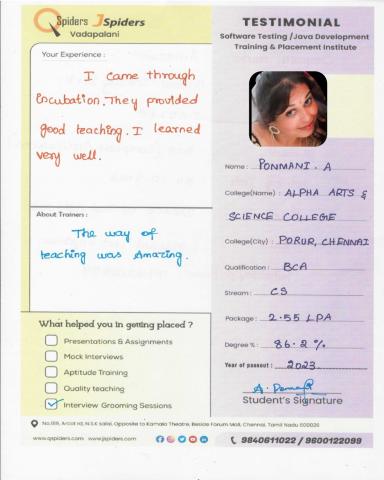 QSpiders JSpiders
Vadapalani
TESTIMONIAL
Software Testing /Java Development
Training & Placement Institute
Your Experience :
I came through
Incubation. They provided
good teaching. I learned
very well.
Name : PONMANI. A
College(Name) : ALPHA ARTS &
SCIENCE COLLEGE
College(City) : PORUR, CHENNAI
Qualification : BCA
Stream : CS
Package : 2.55 LPA
Degree % : 86.2 %
Year of passout : 2023
Student's Signature
About Trainers :
The way of
teaching was Amazing.
What helped you in getting placed ?
Presentations & Assignments
Mock Interviews
Aptitude Training
Quality teaching
Interview Grooming Sessions
Arcot rd, N.S.K sallai, Opposite to Kamala Theatre, Beside Forum Mall, Chennai, Tamil Nadu 600026
www.qspiders.com www.jspiders.com
9840611022 / 9600122099